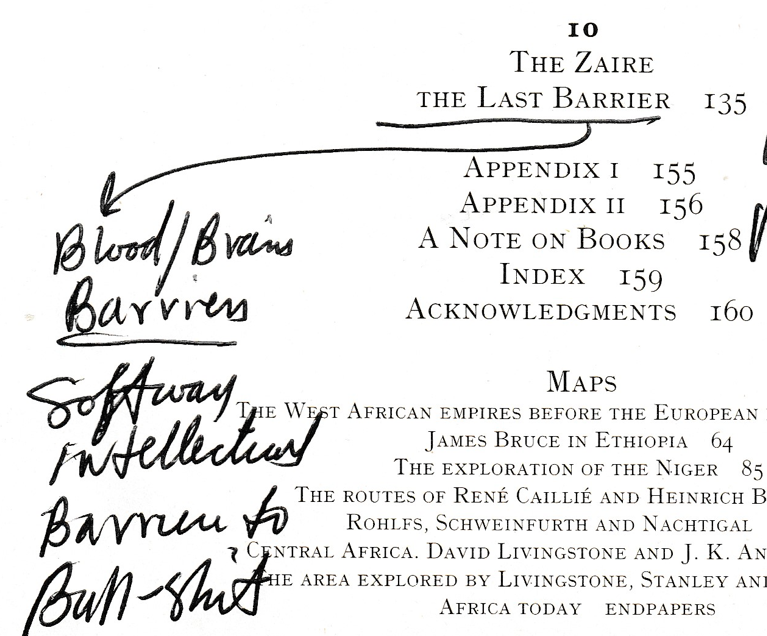 10
THE ZAIRE
THE LAST BARRIER 135
APPENDIX I 155
APPENDIX II 156
A NOTE ON BOOKS 158
INDEX 159
ACKNOWLEDGMENTS 160
Blood/Brain
Barrier
Softway
intellectual
Barrier to
Bull-shit
MAPS
THE WEST AFRICAN EMPIRES BEFORE THE EUROPEAN
JAMES BRUCE IN ETHIOPIA 64
THE EXPLORATION OF THE NIGER 85
THE ROUTES OF RENÉ CAILLIÉ AND HEINRICH B
ROHLFS, SCHWEINFURTH AND NACHTIGAL
CENTRAL AFRICA. DAVID LIVINGSTONE AND J. K. AN
THE AREA EXPLORED BY LIVINGSTONE, STANLEY AN
AFRICA TODAY ENDPAPERS